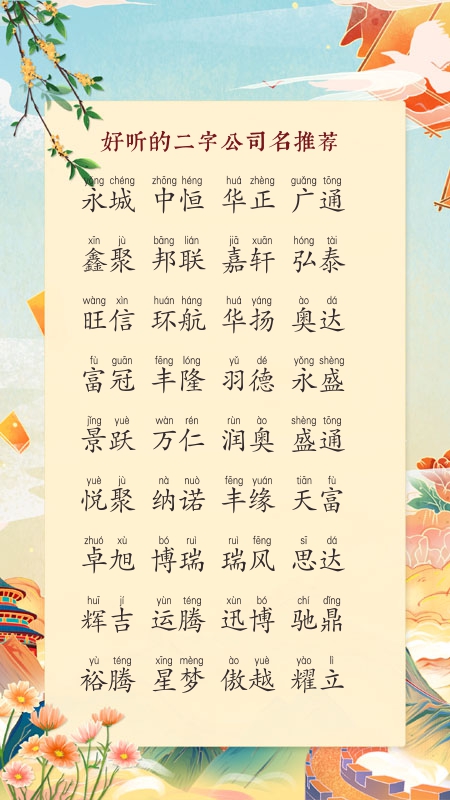 好听的二字公司名推荐
yǒng chéng zhōng héng huá zhèng guǎng tōng
永城 中恒 华正 广通
xīn jù bāng lián jiā xuān hóng tài
鑫聚 邦联 嘉轩 弘泰
wàng xìn huán háng huá yáng ào dá
旺信 环航 华扬 奥达
fù guān fēng lóng yǔ dé yǒng shèng
富冠 丰隆 羽德 永盛
jǐng yuè wàn rén rùn ào shèng tōng
景跃 万仁 润奥 盛通
yuè jù nà nuò fēng yuán tiān fù
悦聚 纳诺 丰缘 天富
zhuó xù bó ruì ruì fēng sī dá
卓旭 博瑞 瑞风 思达
huī jí yùn téng xùn bó chí dǐng
辉吉 运腾 迅博 驰鼎
yù téng xīng mèng ào yuè yào lì
裕腾 星梦 傲越 耀立